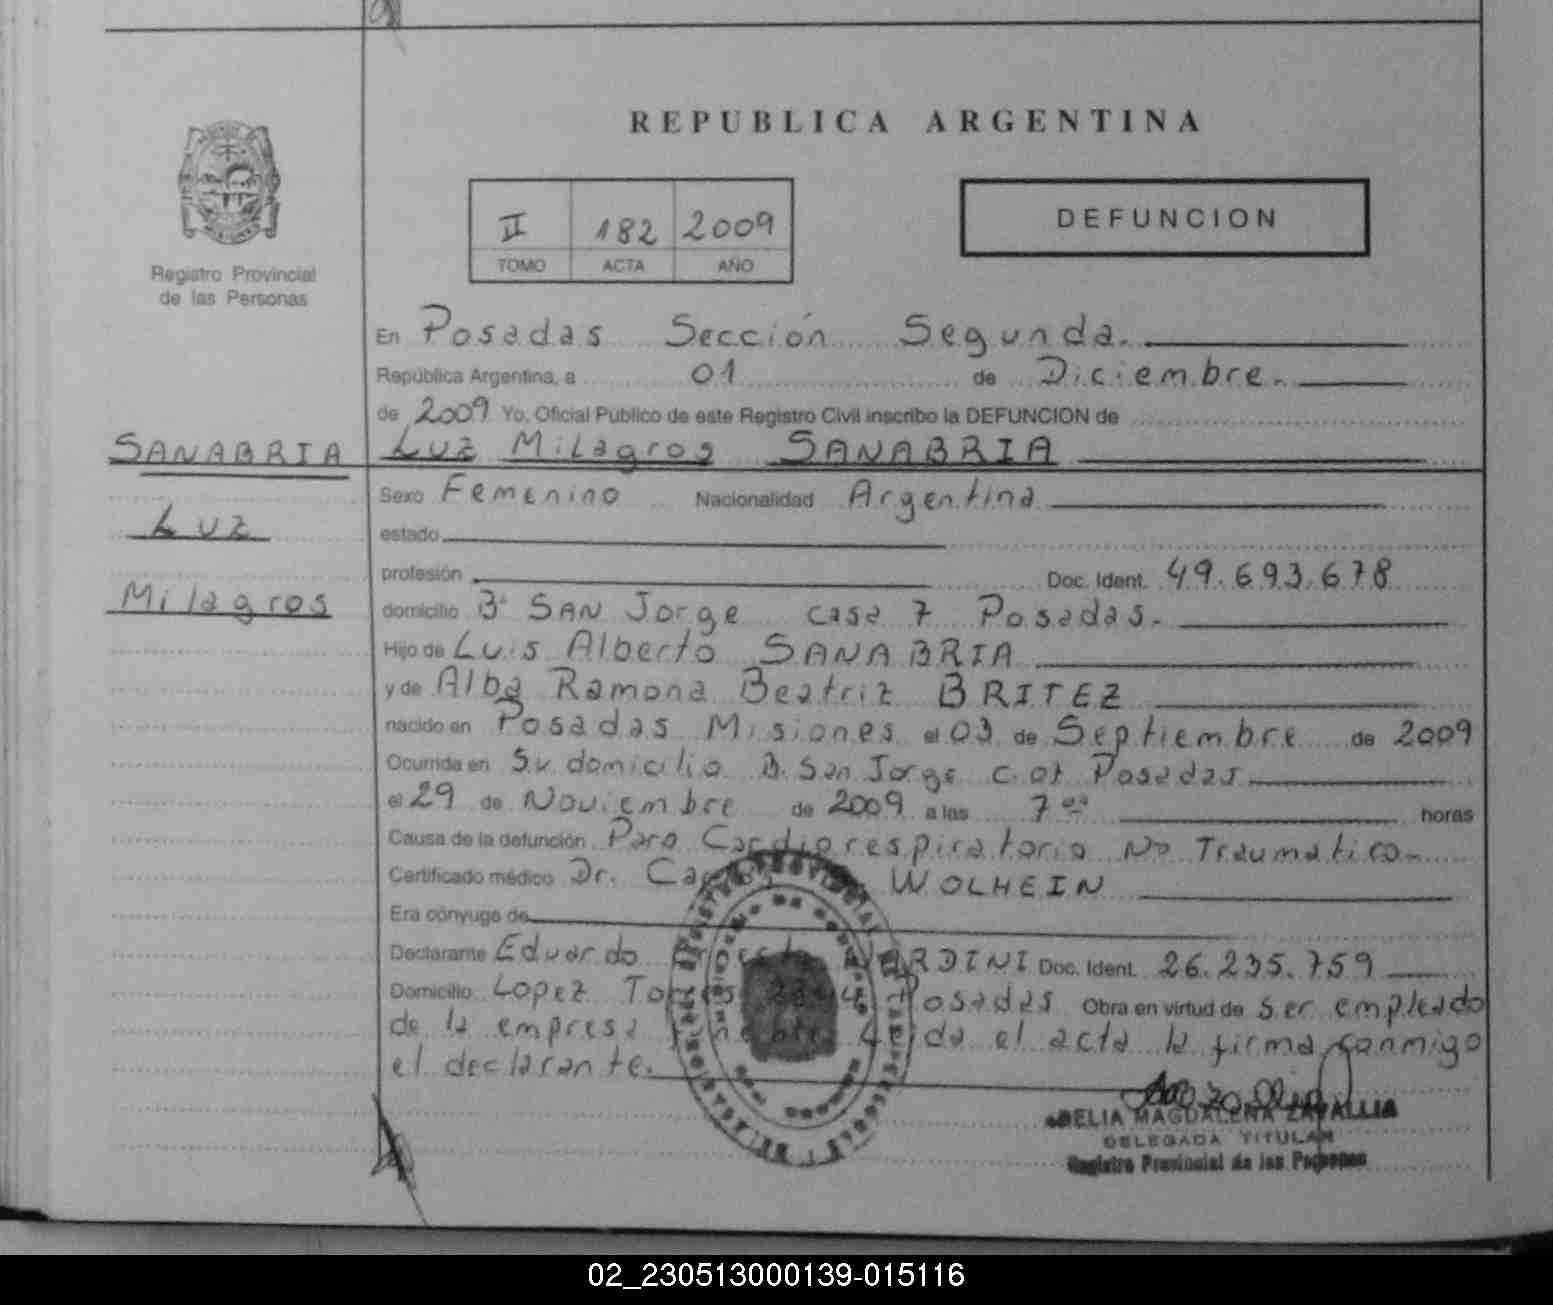 REPUBLICA ARGENTINA
II 182 2009
TOMO ACTA AÑO
DEFUNCION
Registro Provincial
de las Personas
En Posadas Sección Segunda.
República Argentina, a 01 de Diciembre.
de 2009 Yo, Oficial Público de este Registro Civil inscribo la DEFUNCION de
Luz Milagros SANABRIA
SANABRIA
Luz
Milagros
Sexo Femenino Nacionalidad Argentina
estado
profesión Doc. Ident. 49.693.678
domicilio Bº SAN Jorge casa 7 Posadas.
Hijo de Luis Alberto SANABRIA
y de Alba Ramona Beatriz BRITEZ
nacido en Posadas Misiones el 03 de Septiembre de 2009
Ocurrida en Su domicilio B. San Jorge c. 07 Posadas
el 29 de Noviembre de 2009 a las 7 00 horas
Causa de la defunción Paro Cardiorespiratorio No Traumatico
Certificado médico Dr. WOLHEIN
Era cónyuge de
Declarante Eduardo Doc. Ident. 26.235.759
Domicilio Lopez Torres Posadas Obra en virtud de ser empleado
de la empresa el acta la firma conmigo
el declarante.
DELIA MAGDALENA ZAVALLIA
DELEGADA TITULAR
Registro Provincial de las Personas
02_230513000139-015116